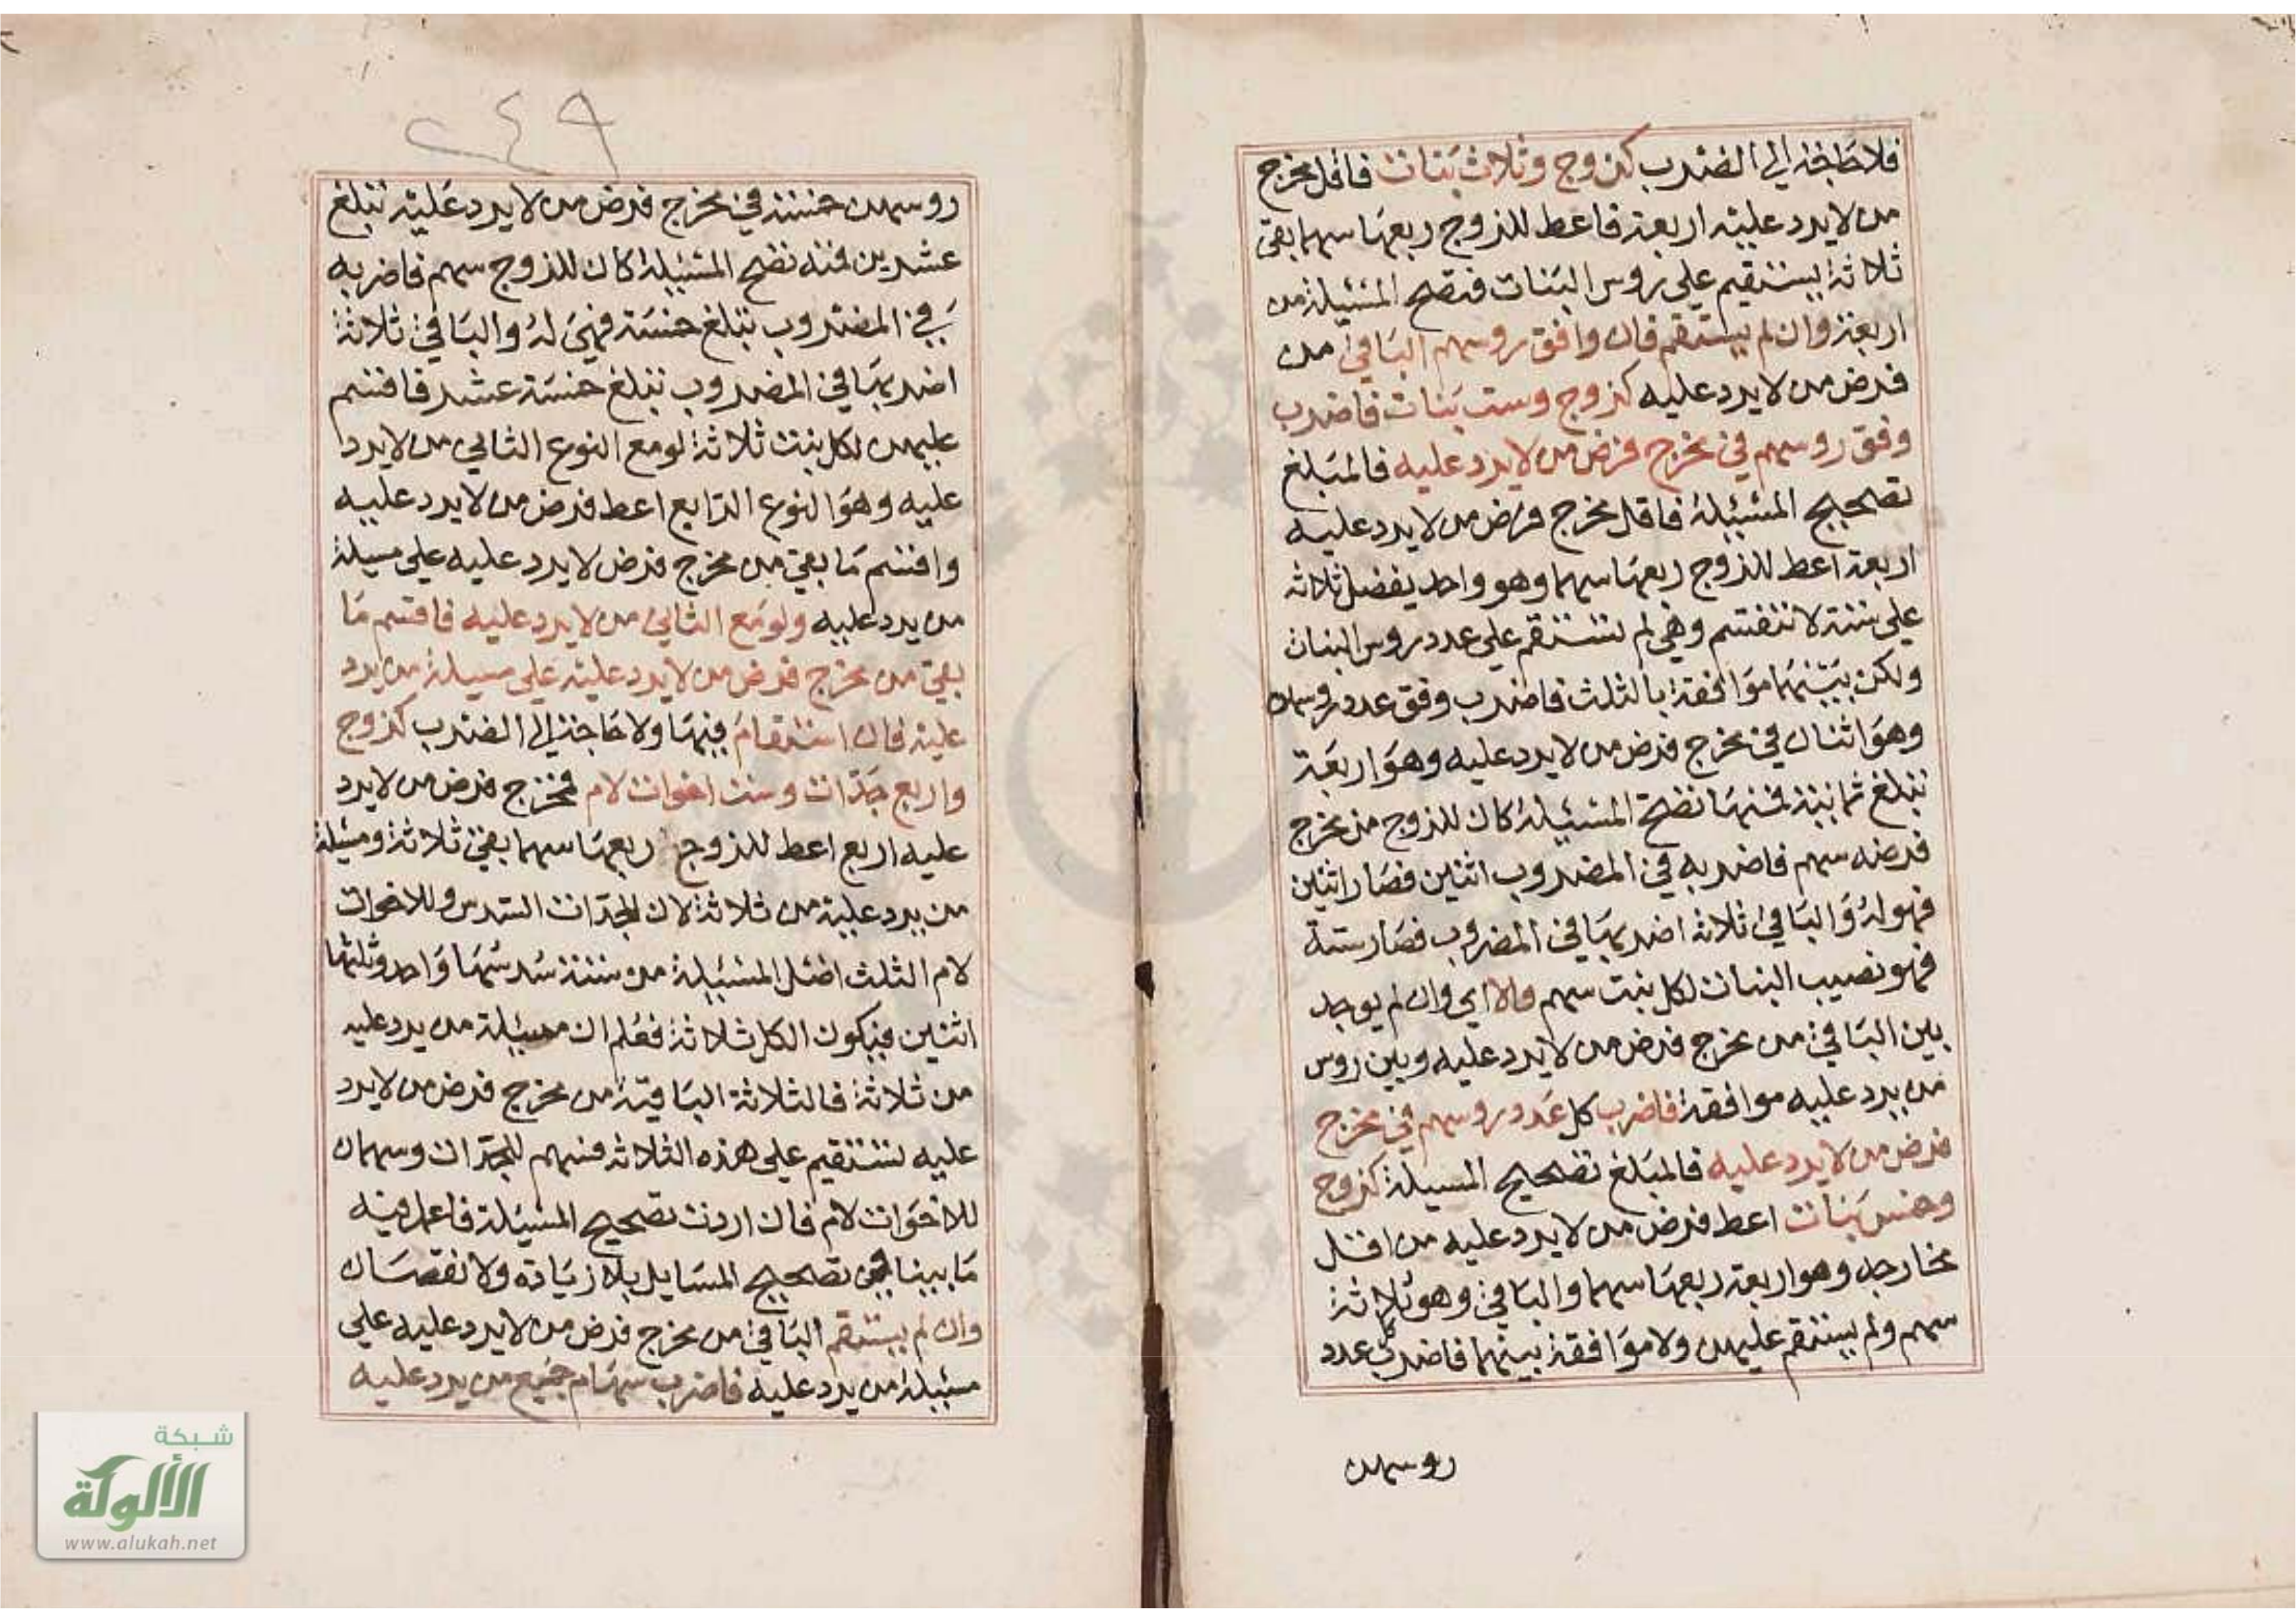 فلا حاجة الي الضرب كزوج وثلاث بنات فاقل مخرج
من لا يرد عليه اربعة فاعط للزوج ربعها سهما بقي
ثلاثة يستقيم علي روس البنات فتصح المسئيلة من
اربعة وان لم يستقم فان وافق روسهم الباقي من
فرض من لا يرد عليه كزوج وست بنات فاضرب
وفق روسهم في مخرج فرض من لا يرد عليه فالمبلغ
تصحيح المسئيلة فاقل مخرج فرض من لا يرد عليه
اربعة اعط للزوج ربعها سهما وهو واحد يفضل ثلاثه
علي ستة لا تنقسم وهي لم تستقم علي عدد روس البنات
ولكن بينهما موافقة بالثلث فاضرب وفق عدد روسهن
وهو اثنان في مخرج فرض من لا يرد عليه وهو اربعة
تبلغ ثمانية فمنها تصح المسئيلة كان للزوج من مخرج
فرضه سهم فاضربه في المضروب اثنين فصار اثنين
فهو له والباقي ثلاثه اضربها في المضروب فصار ستة
فهو نصيب البنات لكل بنت سهم والا اي وان لم يوجد
بين الباقي من مخرج فرض من لا يرد عليه وبين روس
من يرد عليه موافقة فاضرب كل عدد روسهم في مخرج
فرض من لا يرد عليه فالمبلغ تصحيح المسيلة كزوج
وخمس بنات اعط فرض من لا يرد عليه من اقل
مخارجه وهو اربعة ربعها سهما والباقي وهو ثلاثة
سهم ولم يستقم عليهن ولا موافقة بينهما فاضرب كل عدد
روسهن
٢٤٩
روسهن خمسة في مخرج فرض من لا يرد عليه تبلغ
عشرين فمنه تصح المسئيلة كان للزوج سهم فاضربه
في المضروب تبلغ خمسة فهي له والباقي ثلاثة
اضربها في المضروب تبلغ خمسة عشر فاقسم
عليهن لكل بنت ثلاثة لو مع النوع الثاني من لا يرد
عليه وهو النوع الرابع اعط فرض من لا يرد عليه
واقسم ما بقي من مخرج فرض لا يرد عليه علي مسيلة
من يرد عليه ولو مع الثاني من لا يرد عليه فاقسم ما
بقي من مخرج فرض من لا يرد عليه علي مسيلة من يرد
عليه فان استقام فبها ولا حاجة الي الضرب كزوج
واربع جدات وست اخوات لام فمخرج فرض من لا يرد
عليه اربع اعط للزوج ربعها سهما بقي ثلاثة ومسئيلة
من يرد عليه من ثلاثة لان للجدات السدس وللاخوات
لام الثلث اصل المسئيلة من ستة سدسها واحد وثلثها
اثنين فيكون الكل ثلاثة فعلم ان مسئيلة من يرد عليه
من ثلاثة فالثلاثة الباقية من مخرج فرض من لا يرد
عليه تستقيم علي هذه الثلاثه فسهم للجدات وسهمان
للاخوات لام فان اردت تصحيح المسئيلة فاعمل فيه
ما بينا في تصحيح المسايل بلا زيادة ولا نقصان
وان لم يستقم الباقي من مخرج فرض من لا يرد عليه علي
مسئيلة من يرد عليه فاضرب سهام جميع من يرد عليه
شبكة
الألوكة
www.alukah.net